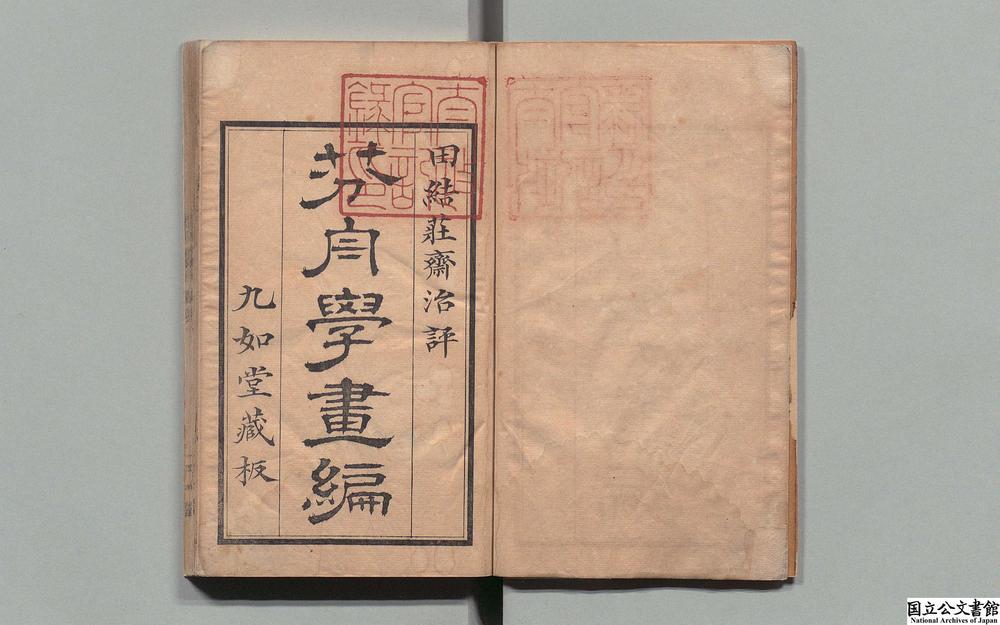 太政
官記
錄印
田結莊齋治評
芥舟學畫編
九如堂藏板
国立公文書館
National Archives of Japan